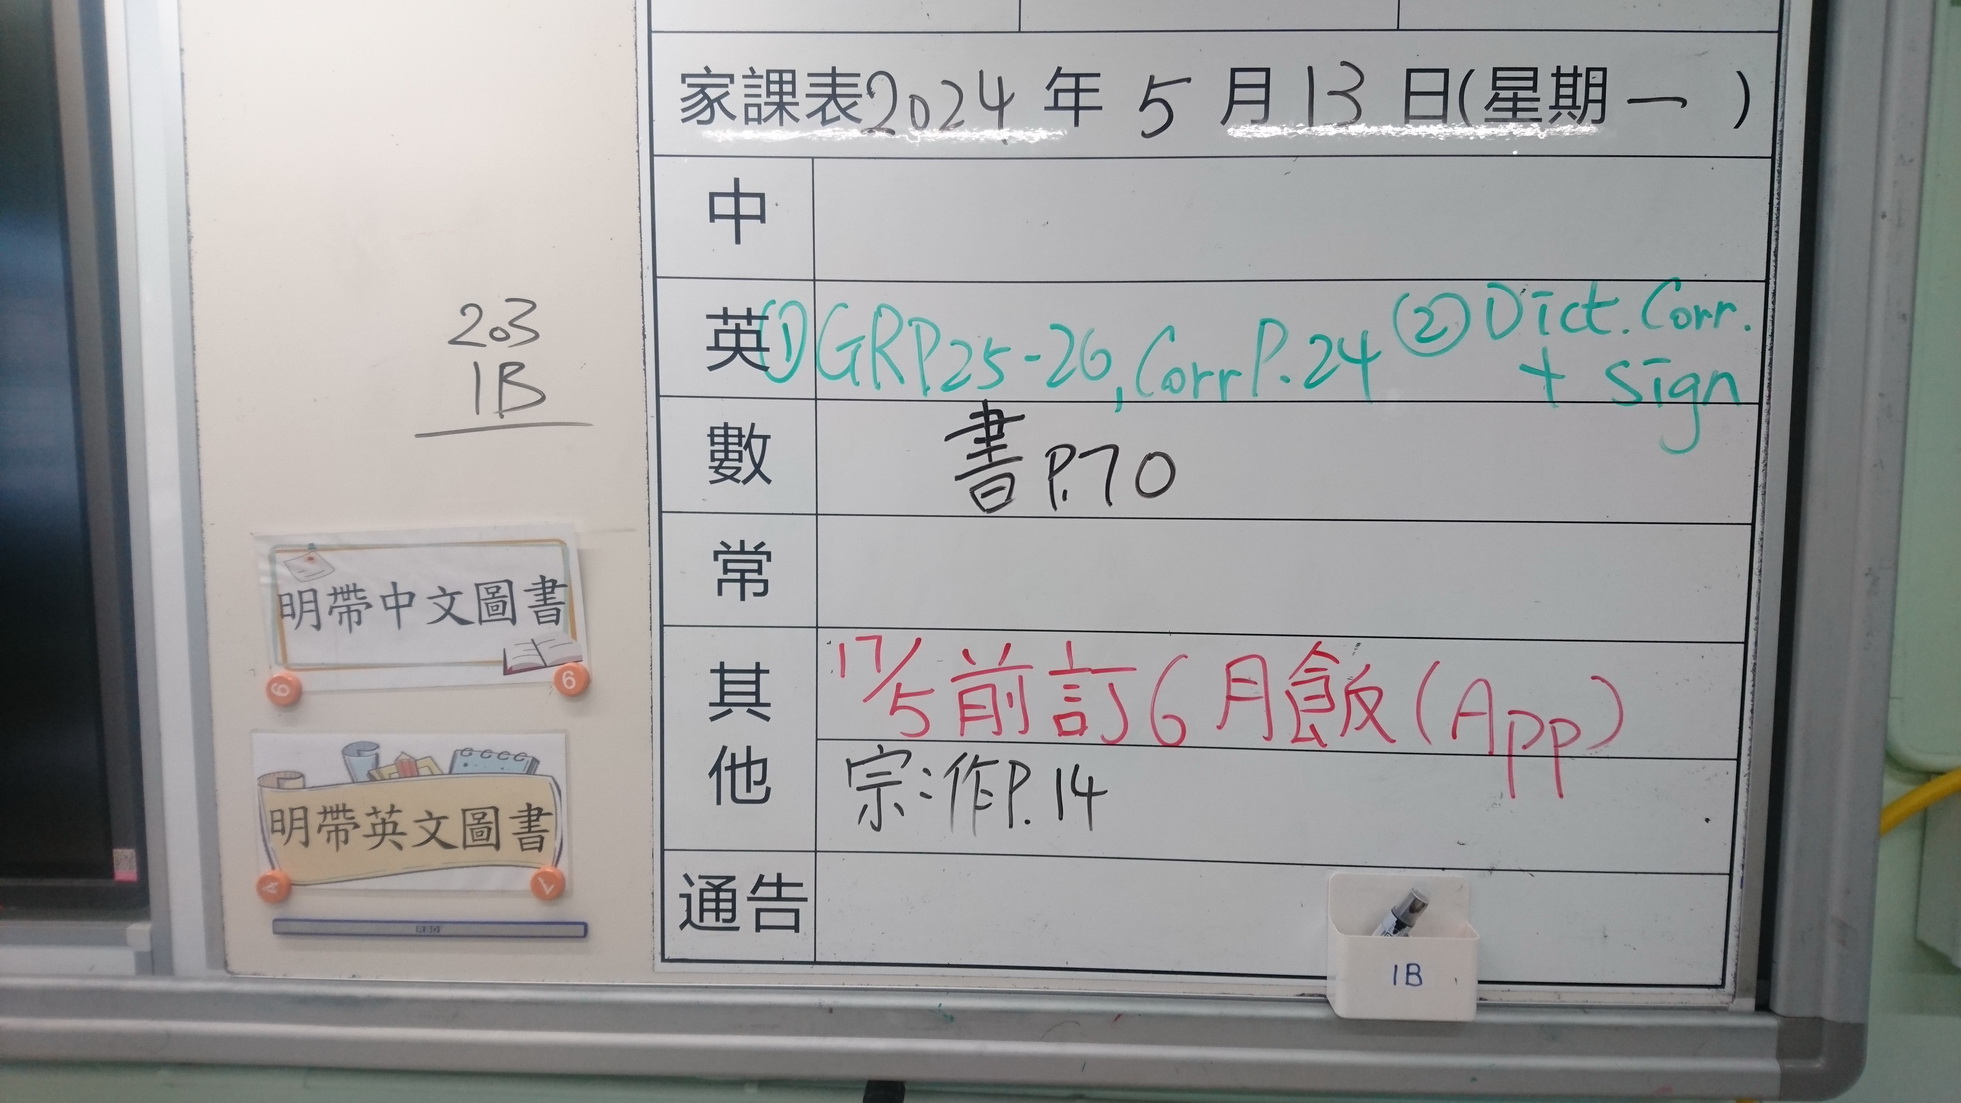 家課表2024年5月13日(星期一)
中
英 ①GRP25-26, Corr P.24 ②Dict. Corr.
+ sign
數 書P.70
常
其他
17/5前訂6月飯(App)
宗:作P.14
通告
203
1B
明帶中文圖書
明帶英文圖書
1B